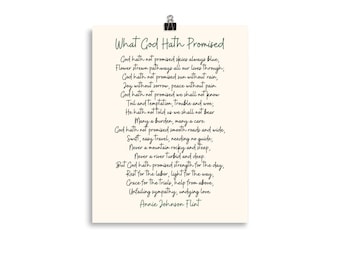 What God Hath Promised
God hath not promised skies always blue,
Flower strewn pathways all our lives through;
God hath not promised sun without rain,
Joy without sorrow, peace without pain.
God hath not promised we shall not know
Toil and temptation, trouble and woe;
He hath not told us we shall not bear
Many a burden, many a care.
God hath not promised smooth roads and wide,
Swift, easy travel, needing no guide;
Never a mountain rocky and steep,
Never a river turbid and deep.
But God hath promised strength for the day,
Rest for the labor, light for the way,
Grace for the trials, help from above,
Unfailing sympathy, undying love.
Annie Johnson Flint